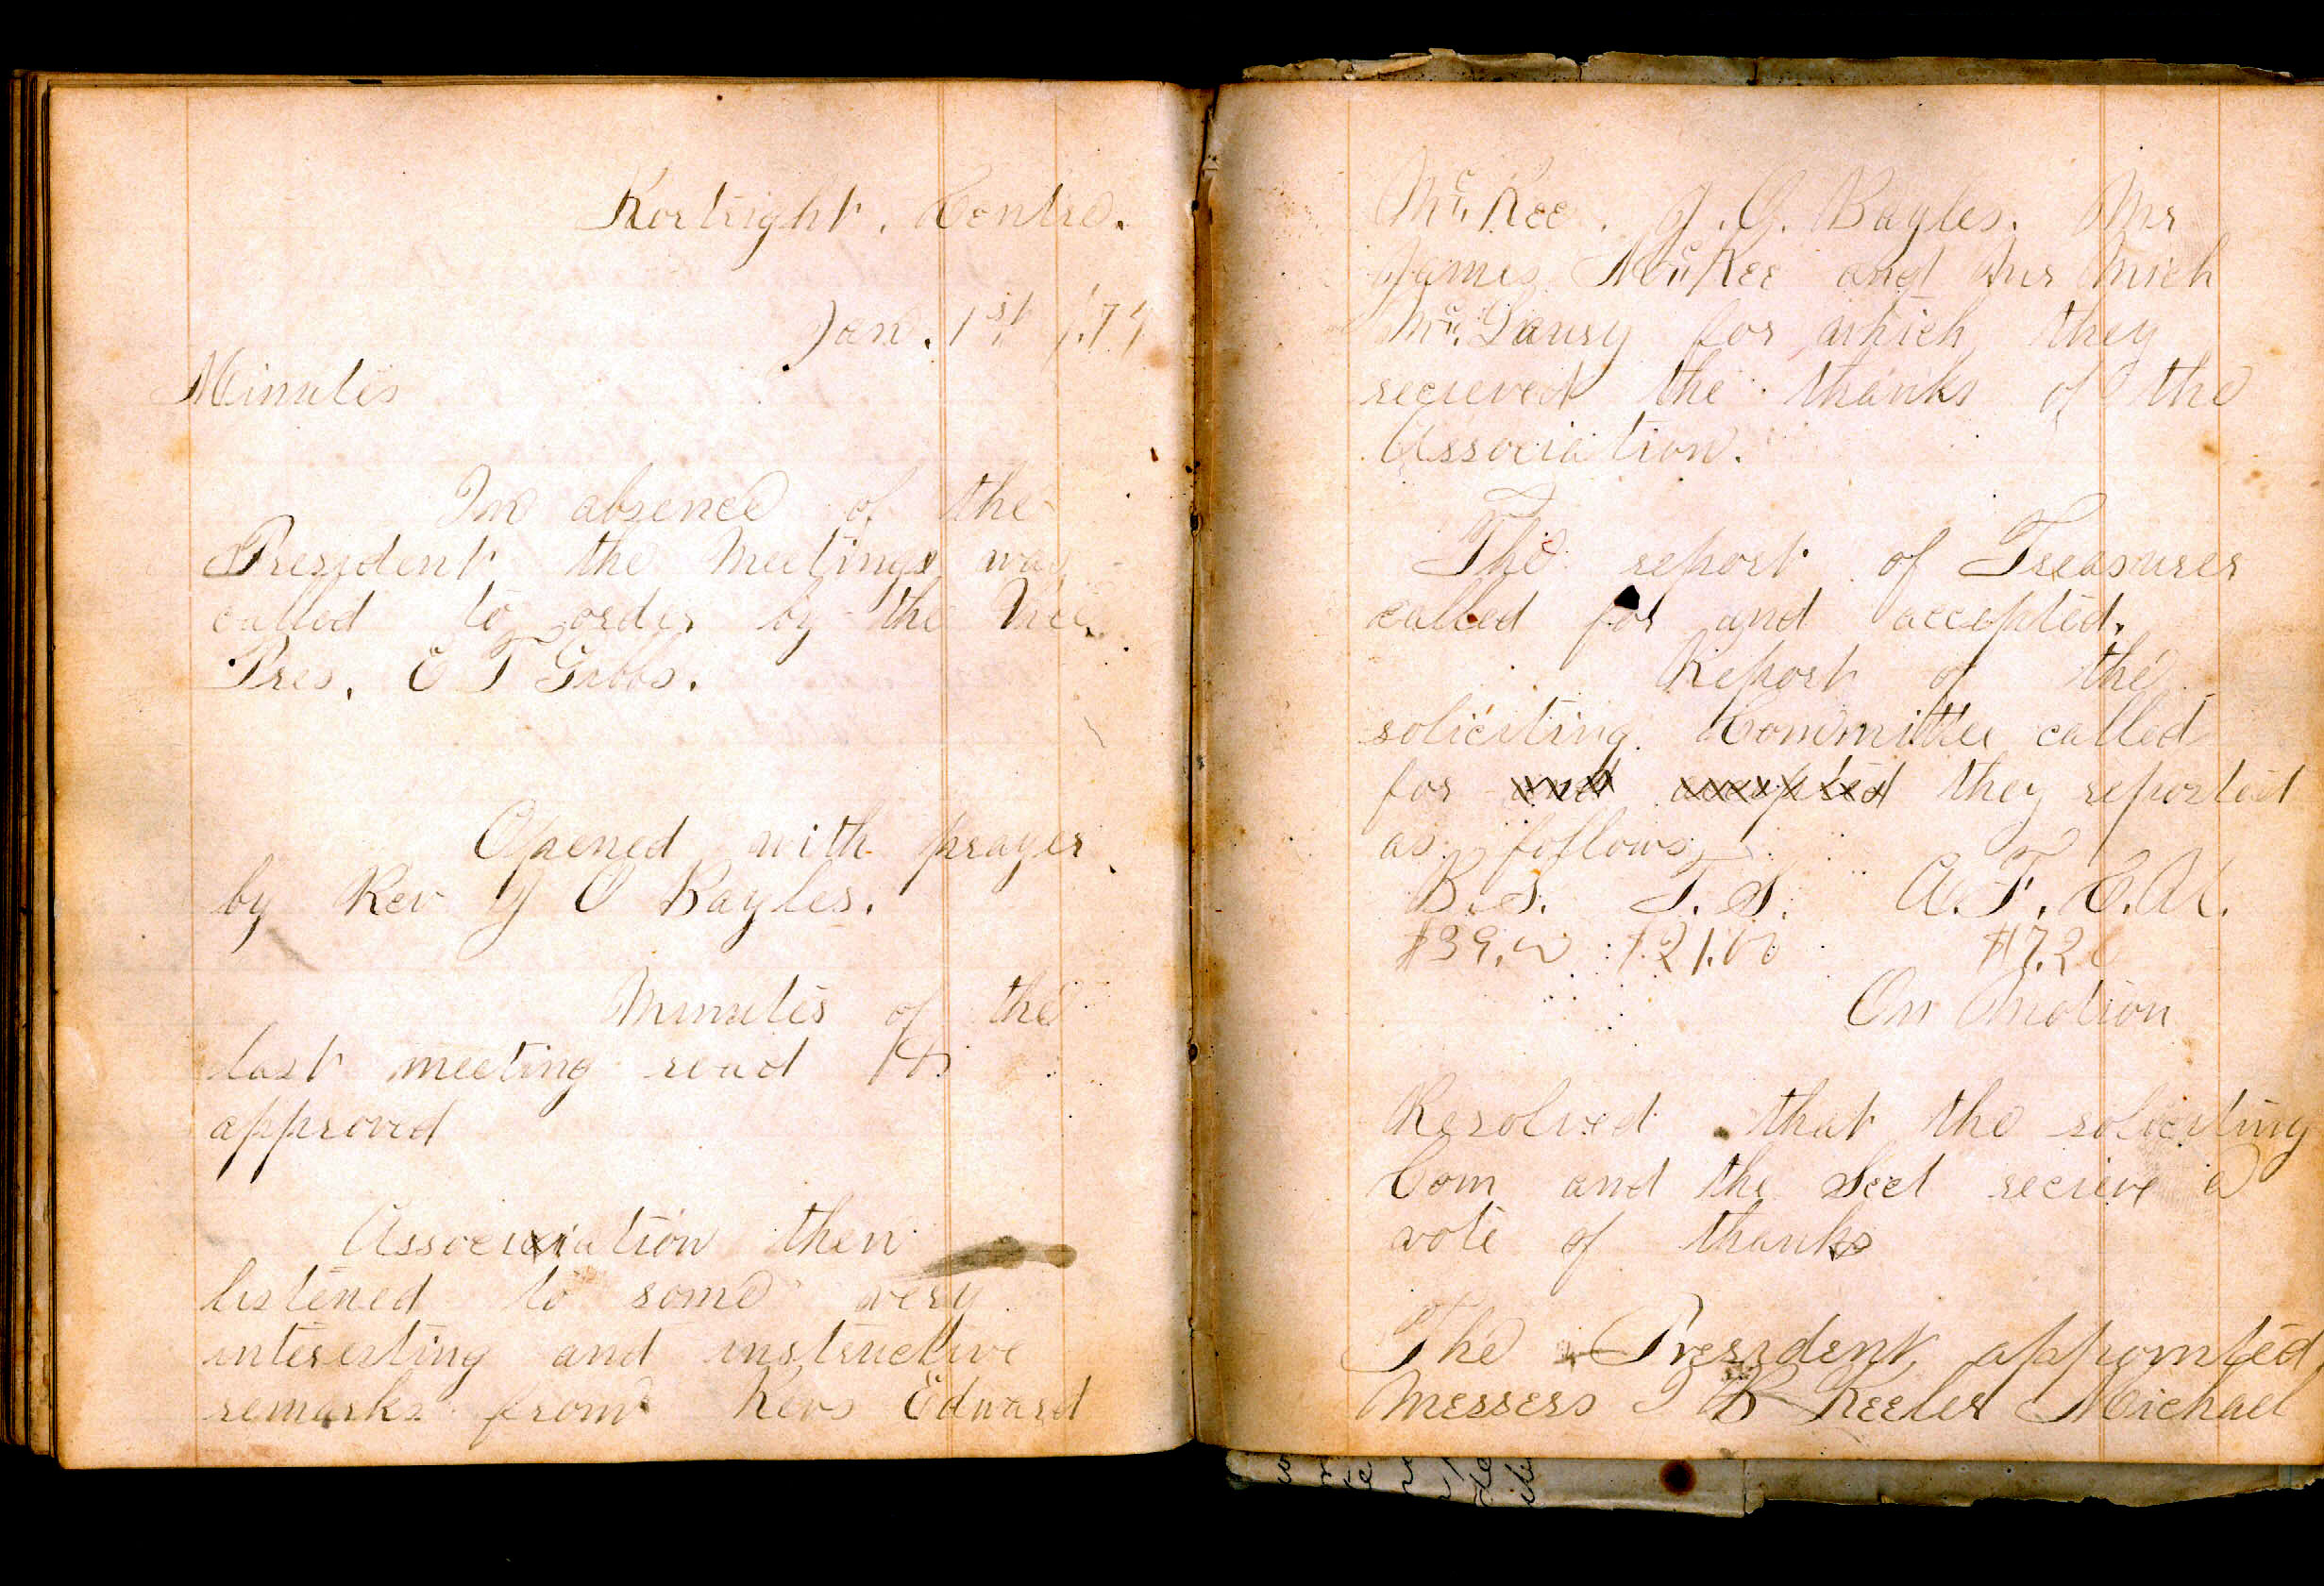 Kortright. Centre.
Jan. 1st /.79
Minutes
In absence of the
President the Meetings was
called to order by the Vice
Pres. E T Gibbs.
Opened with prayer
by Rev J O Bayles.
Minutes of the
last meeting read &
approved
Association then
listened to some very
interesting and instructive
remarks from Revs Edward
McKee. J. O. Bayles. Mr
James McKee and Mr Mich
McLaury for which they
recieved the thanks of the
Association.
The report of Treasurer
called for and accepted.
Report of the
soliciting Committee called
for and accepted they reported
as follows
B.S. T.S. A. F. C.U.
$39.00 $21.00 $17.20
On Motion
Resolved that the soliciting
Com and the Sect recieve a
vote of thanks
The President appointed
Messers B Keeler Michael